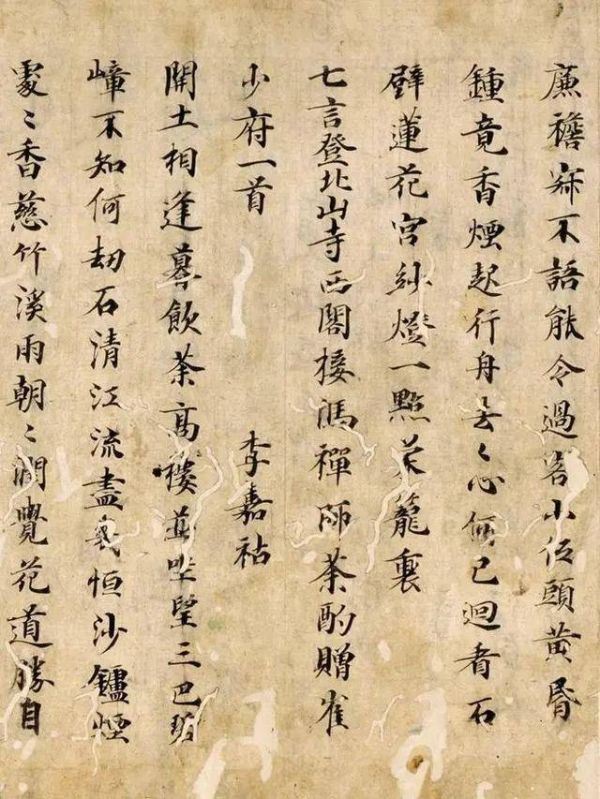 寂不語能令過客小低頭黃昏
鍾竟香煙起行舟去々心何已迴看石
壁蓮花宮紗燈一點籠裏
七言登北山寺西閣接馮禪師茶酌贈崔
少府一首　李嘉祐
開土相逢募飲茶高樓並坐望三巴
嶂不知何劫石清江流盡幾恒沙鑪煙
處〻香慈竹溪雨朝〻潤覺花道勝自